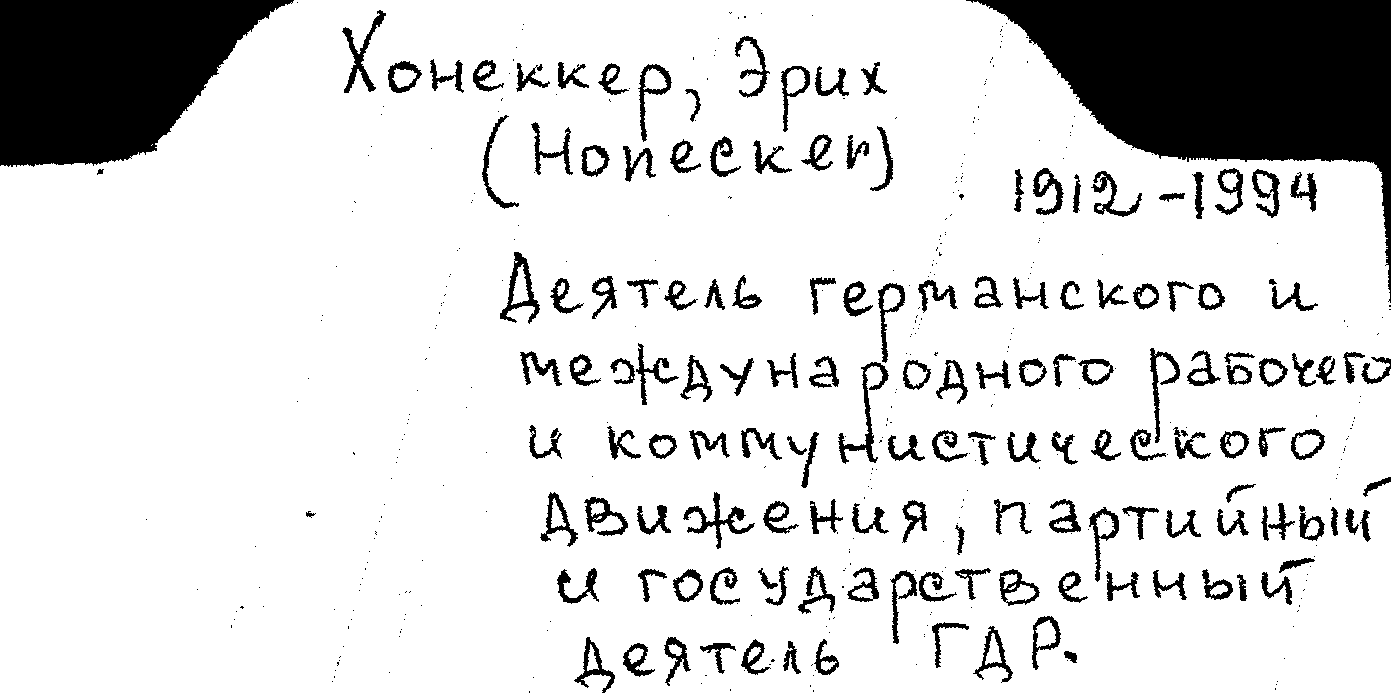 Хонеккер, Эрих
(Honecker)
1912-1994
Деятель германского и
международного рабочего
и коммунистического
движения, партийный
и государственный
деятель ГДР.